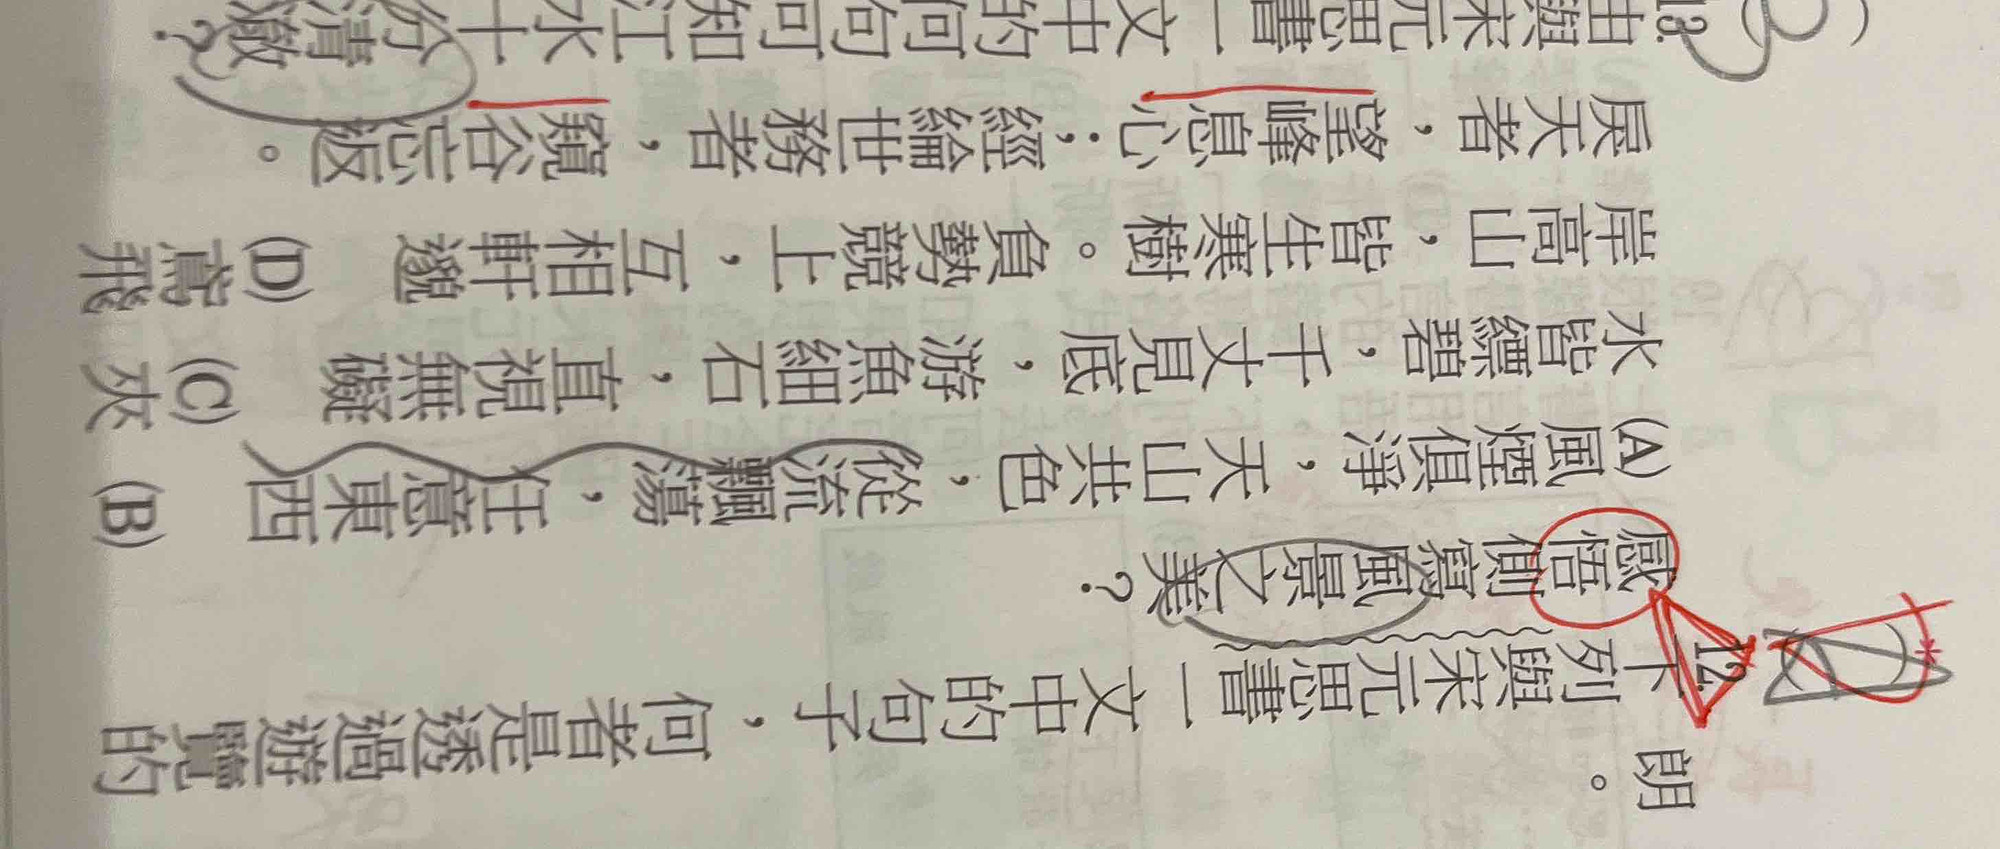 朗。
12.下列與宋元思書一文中的句子，何者是透過遊覽的
感悟側寫風景之美？
(A)風煙俱淨，天山共色，從流飄蕩，任意東西 (B)
水皆縹碧，千丈見底，游魚細石，直視無礙 (C)夾
岸高山，皆生寒樹。負勢競上，互相軒邈 (D)鳶飛
戾天者，望峰息心；經綸世務者，窺谷忘返。
13.由與宋元思書一文中的何句可知江水十分清澈？